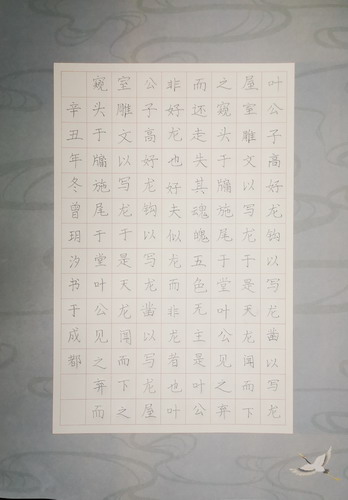 叶公子高好龙钩以写龙凿以写龙
屋室雕文以写龙于是天龙闻而下
之窥头于牖施尾于堂叶公见之弃
而还走失其魂魄五色无主是叶公
非好龙也好夫似龙而非龙者也叶
公子高好龙钩以写龙凿以写龙屋
室雕文以写龙于是天龙闻而下之
窥头于牖施尾于堂叶公见之弃而
辛丑年冬曾玥汐书于成都